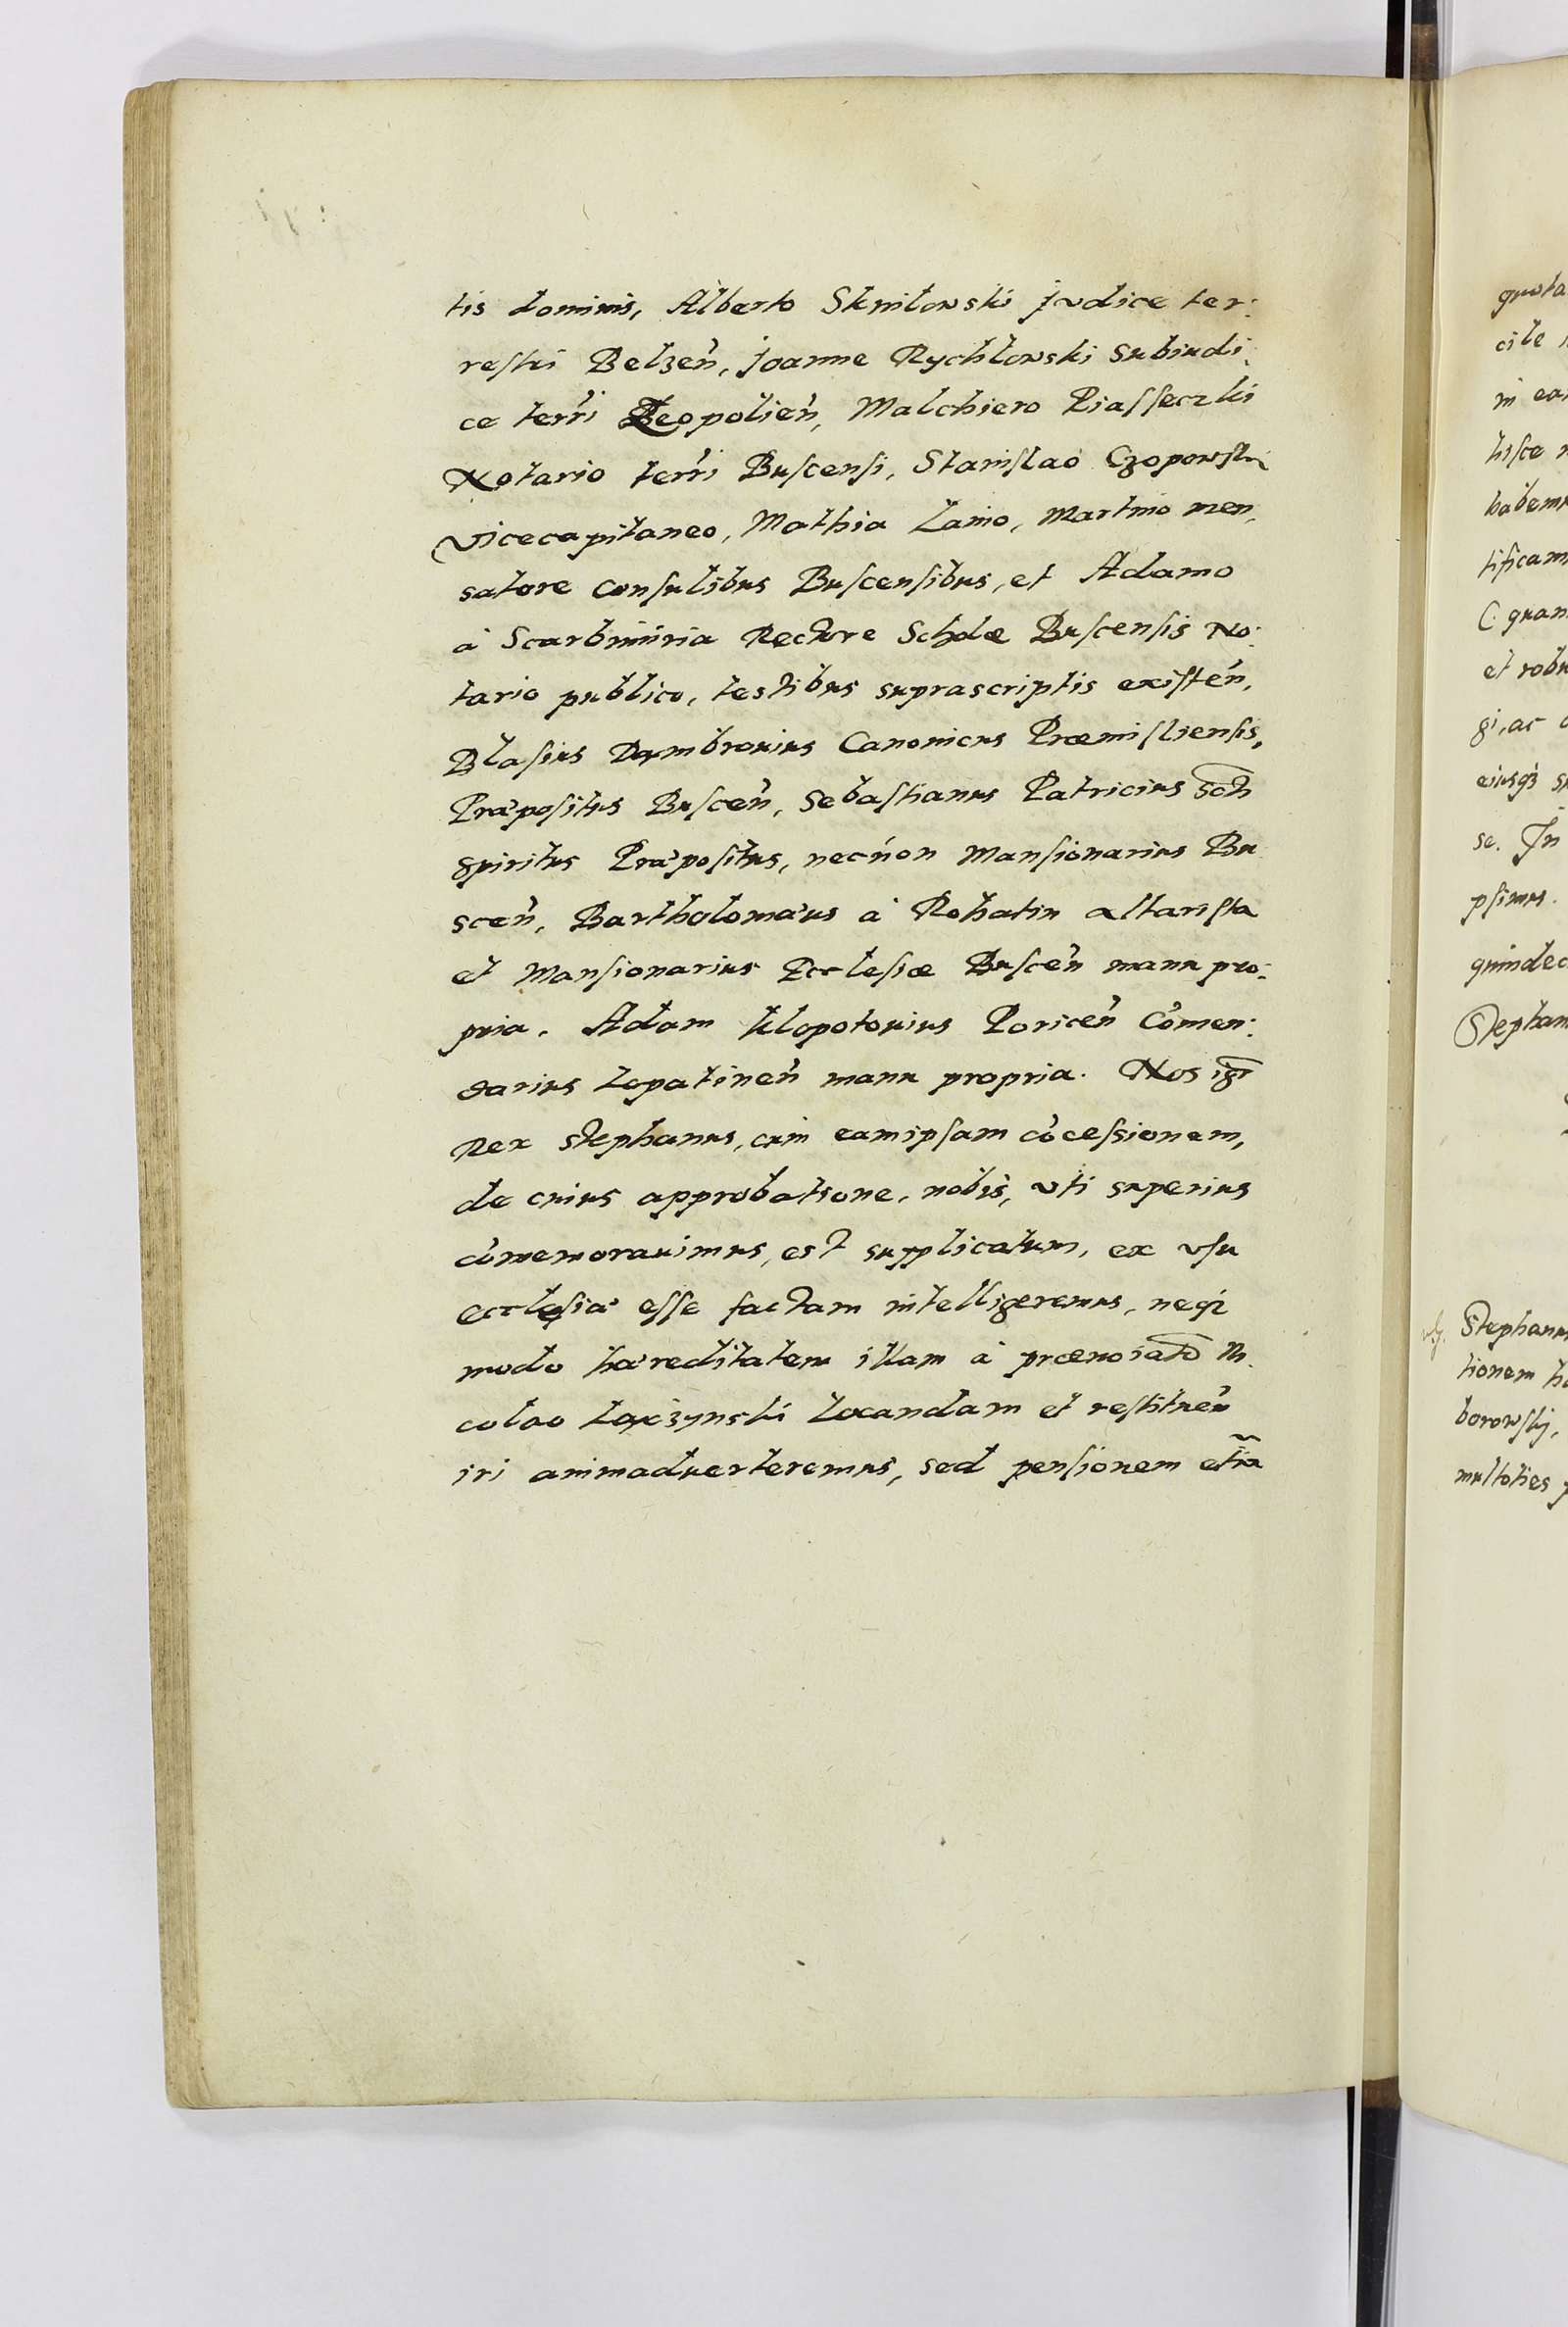 tis dominis, Alberto Sknilowski judice ter:
restri Belzen̄, Joanne Rychlowski Subiudi:
ce terri Leopolien̄, Malchiero Piasseczki
Notario terri Buscensi, Stanislao Czopowski
vicecapitaneo, Mathia Lanio, Martino men,
satore Consulibus Buscensibus, et Adamo
à Scarbimiria Rectore Scholæ Buscensis No:
tario publico, testibus suprascriptis existen̄,
Blasius Dambrovius Canonicus Præmisliensis,
Præpositus Buscen̄, Sebastianus Patricius Scti
spiritus Præpositus, necnon Mansionarius Bu
scen̄, Bartholomæus à Rohatin altarista
et Mansionarius Ecclesiæ Buscen̄ manu pro:
pria. Adam Klopotovius Poricen̄ Com̄en:
darius Lopatinen̄ manu propria. Nos igr̄
Rex Stephanus, cum eamipsam cōcessionem,
de cuius approbatione, nobis, vti superius
com̄emorauimus, est supplicatum, ex vsu
ecclesiæ esse factam intelligeremus, neq3
modo hæreditatem illam à prænoiato Ni
colao Lączynski locandam et restituen̄
iri animaduerteremus, sed pensionem etiā
quota
cile
in ea
tisce
habem
tifica
C. quam
et robu
gi, ac
eiusq3 s
se. In
psimus.
quindec
Stephan
Stephanus
tionem h
borowskj,
multoties